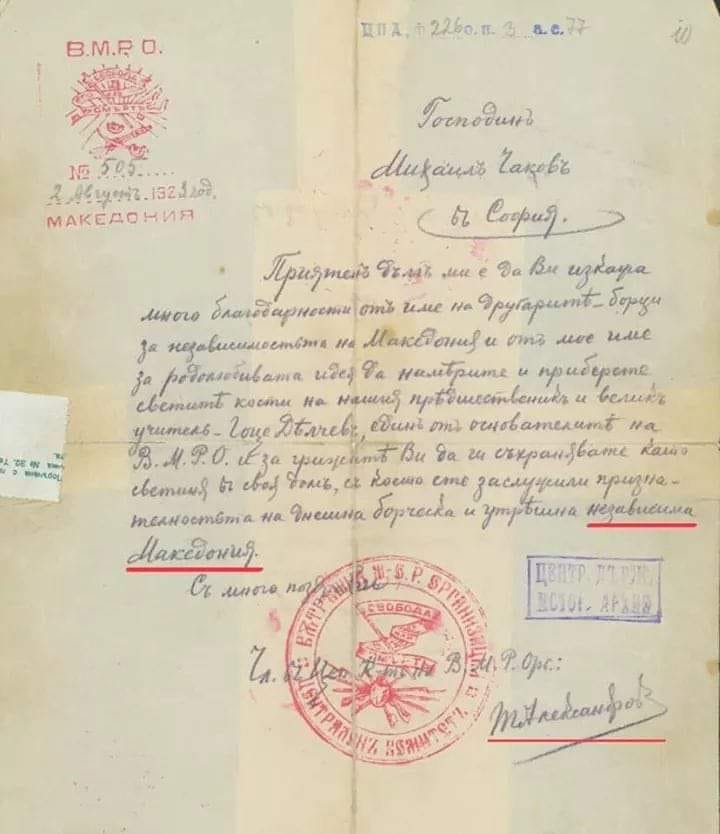 В.М.Р.О.
СВОБОДА
№ 505
2 Августъ 1923 год.
МАКЕДОНИЯ
ЦПА, ф 226 о.п. 3 а.е. 77
10
Господинъ
Михаилъ Чаковъ
въ София.
Приятенъ дългъ ми е да Ви изкажа
много благодарности отъ име на другаритѣ-борци
за независимостьта на Македония и отъ мое име
за родолюбивата идея да намѣрите и приберете
светитѣ кости на нашия прѣдшественикъ и великъ
учитель - Гоце Дѣлчевъ, единъ отъ основателитѣ на
В.М.Р.О. и за грижитѣ Ви да ги съхранявате като
светиня въ своя домъ, съ което сте заслужили призна-
телностьта на днешна борческа и утрѣшна независима
Македония.
Съ много
Чл. въ Цен. К-тъ на В.М.Р.Орг.:
ТАлександровъ
СВОБОДА
ЦЕНТРАЛЕНЪ КОМИТЕТЪ
ЦЕНТР. ДЪРЖ.
ИСТОР. АРХИВ